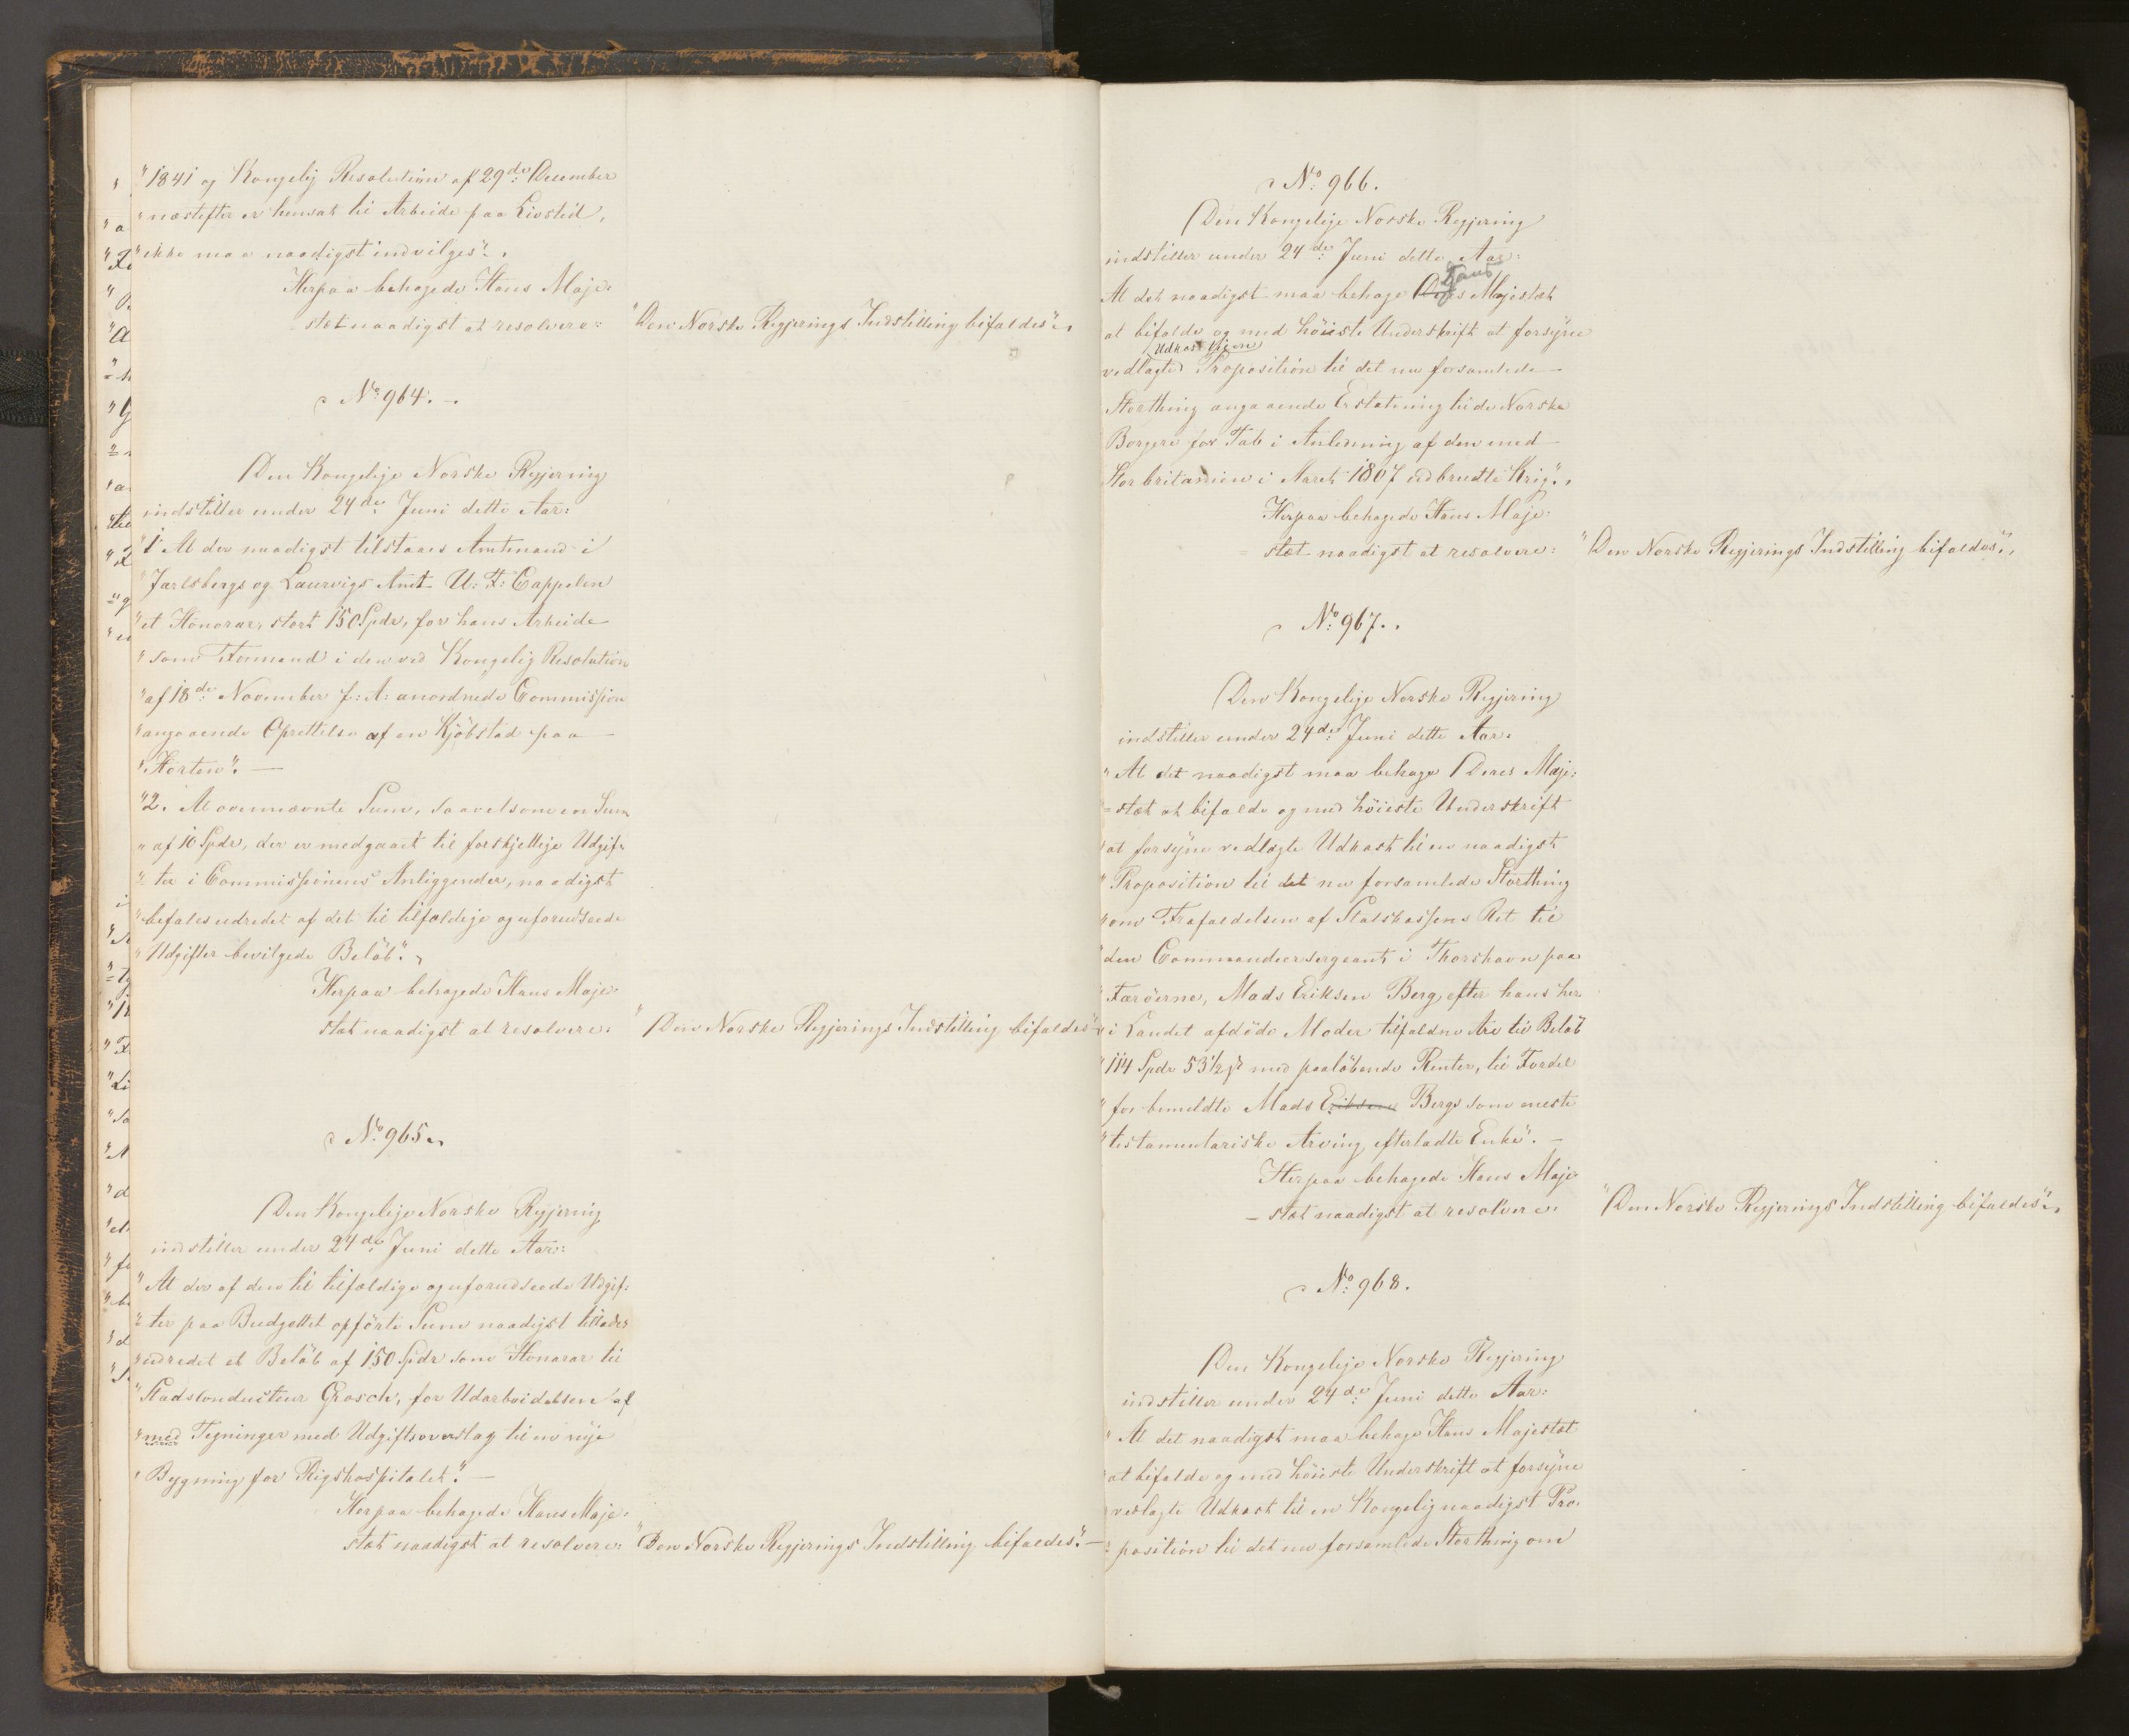 "1841 og Kongelig Resolution af 29de December
"næstefter er hensat til Arbeide paa Livstid,
"ikke maa naadigst indvilges".
Herpaa behagede Hans Maje-
stæt naadigst at resolvere: "Den Norske Regjerings Indstilling bifaldes".
No 964.
Den Kongelige Norske Regjering
indstiller under 24de Juni dette Aar:
"1 At der naadigst tilstaaes Amtmand i
"Jarlsbergs og Laurvigs Amt U: F: Cappelen
"et Honorar, stort 150 Spdr, for hans Arbeide
"som Formand i den ved Kongelig Resolution
"af 18de November f: A: anordnede Commission
"angaaende Oprettelse af en Kjöbstad paa
"Horten". —
"2. At ovennævnte Sum, saavelsom en Sum
"af 10 Spdr, der er medgaaet til forskjellige Udgif-
"ter i Commissionens Anliggender, naadigst
"befales udredet af det til tilfældige og uforudseede
"Udgifter bevilgede Belöb".
Herpaa behagede Hans Maje-
stæt naadigst at resolvere: "Den Norske Regjerings Indstilling bifaldes"
No 965.
Den Kongelige Norske Regjering
indstiller under 24de Juni dette Aar:
"At der af den til tilfældige og uforudseede Udgif-
"ter paa Budgettet opförte Sum naadigst tillades
"udredet et Belöb af 150 Spdr som Honorar til
"Stadsconducteur Grosch, for Udarbeidelsen af
"med Tegninger med Udgiftsoverslag til en nye
"Bygning for Rigshospitalet". —
Herpaa behagede Hans Maje-
stæt naadigst at resolvere: "Den Norske Regjerings Indstilling bifaldes". —
No 966.
Den Kongelige Norske Regjering
indstiller under 24de Juni dette Aar:
Hans
At det naadigst maa behage Deres Majestæt
at bifalde og med höieste Underskrift at forsyne
Udkast til en
vedlagte Proposition til det nu forsamlede
Storthing angaaende Erstatning til de Norske
Borgere for Tab i Anledning af den med
Storbritanien i Aaret 1807 udbrudte Krig".
Herpaa behagede Hans Maje-
stæt naadigst at resolvere: "Den Norske Regjerings Indstilling bifaldes".
No 967.
Den Kongelige Norske Regjering
indstiller under 24de Juni dette Aar:
"At det naadigst maa behage Deres Maje-
stæt at bifalde og med höieste Underskrift
"at forsyne vedlagte Udkast til en naadigst
"Proposition til det nu forsamlede Storthing
"om Frafaldelsen af Statskassens Ret til
"den Commandeersergeant i Thorshavn paa
"Færöerne, Mads Eriksen Berg, efter hans her
"i Landet afdöde Moder tilfaldne Arv til Belöb
"114 Spdr 53 1/2 ß med paalöbende Renter, til Fordel
"for bemeldte Mads Eriksens Bergs som eneste
"testamentariske Arving efterladte Enke". —
Herpaa behagede Hans Maje-
stæt naadigst at resolvere: "Den Norske Regjerings Indstilling bifaldes".
No 968.
Den Kongelige Norske Regjering
indstiller under 24de Juni dette Aar:
"At det naadigst maa behage Hans Majestæt
"at bifalde og med höieste Underskrift at forsyne
vedlagte Udkast til en Kongelig naadigst Pro-
position til det nu forsamlede Storthing om